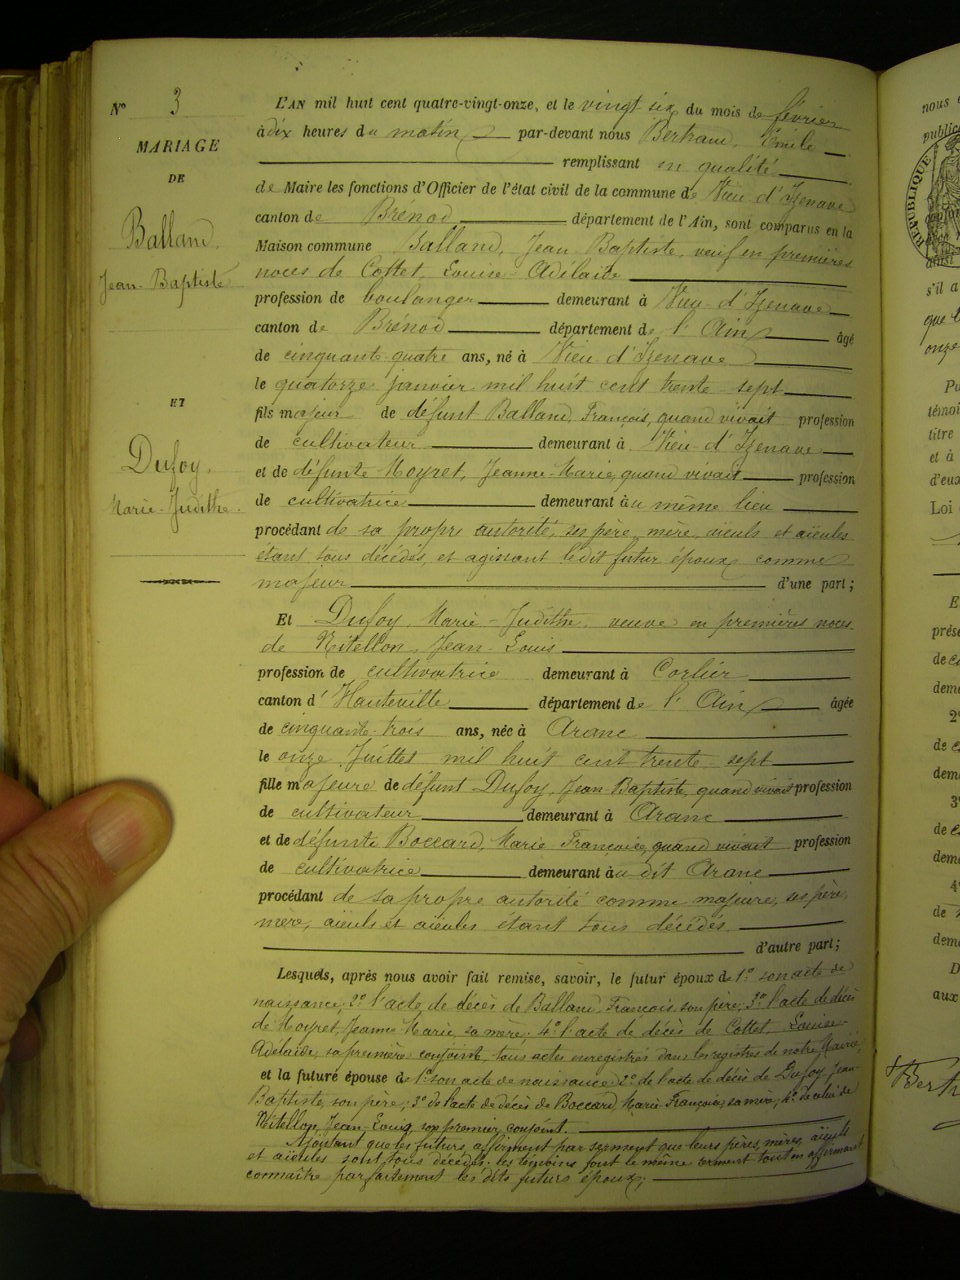 N° 3
MARIAGE
DE
Balland,
Jean-Baptiste
ET
Dufoy,
Marie-Judithe.
L'AN mil huit cent quatre-vingt-onze, et le vingt six du mois de février
à dix heures du matin par-devant nous Bertrand, Emile
remplissant en qualité
de Maire les fonctions d'Officier de l'état civil de la commune de Vieu-d'Izenave
canton de Brénod département de l'Ain, sont comparus en la
Maison commune Balland, Jean-Baptiste, veuf en premières
noces de Cottet, Louise-Adélaïde
profession de boulanger demeurant à Vieu-d'Izenave
canton de Brénod département de l'Ain âgé
de cinquante-quatre ans, né à Vieu-d'Izenave
le quatorze janvier mil huit cent trente-sept
fils majeur de défunt Balland, François, quand vivait profession
de cultivateur demeurant à Vieu-d'Izenave
et de défunte Moyret, Jeanne-Marie, quand vivait profession
de cultivatrice demeurant au même lieu
procédant de sa propre autorité, ses père, mère, aïeuls et aïeules
étant tous décédés, et agissant le dit futur époux comme
majeur d'une part;
Et Dufoy, Marie-Judithe, veuve en premières noces
de Ritellon, Jean-Louis
profession de cultivatrice demeurant à Corlier
canton d'Hauteville département de l'Ain âgée
de cinquante-trois ans, née à Aranc
le onze Juillet mil huit cent trente-sept
fille majeure de défunt Dufoy, Jean-Baptiste, quand vivait profession
de cultivateur demeurant à Aranc
et de défunte Boccard, Marie-Françoise, quand vivait profession
de cultivatrice demeurant au dit Aranc
procédant de sa propre autorité comme majeure, ses père,
mère, aïeuls et aïeules étant tous décédés
d'autre part;
Lesquels, après nous avoir fait remise, savoir, le futur époux de 1° son acte de
naissance; 2° l'acte de décès de Balland, François son père; 3° l'acte de décès
de Moyret, Jeanne-Marie, sa mère; 4° l'acte de décès de Cottet Louise-
Adélaïde, sa première conjointe, tous actes enregistrés dans les registres de notre Mairie,
et la future épouse de 1° son acte de naissance; 2° de l'acte de décès de Dufoy Jean-
Baptiste, son père; 3° de l'acte de décès de Boccard, Marie-Françoise, sa mère; 4° de celui de
Ritellon, Jean-Louis, son premier conjoint.
Ajoutant que les futurs, affirment par serment que leurs pères, mères, aïeuls
et aïeules sont tous décédés; les témoins font le même serment tout en affirmant
connaître parfaitement les dits futurs époux;
nous
public
RÉPUBLIQUE
s'il a
que l
onze
Pu
témoi
titre
et à
d'eux
Loi
E
prése
de c
deme
2°
de c
dem
3°
de c
deme
4°
de
deme
D
aux
Bertr